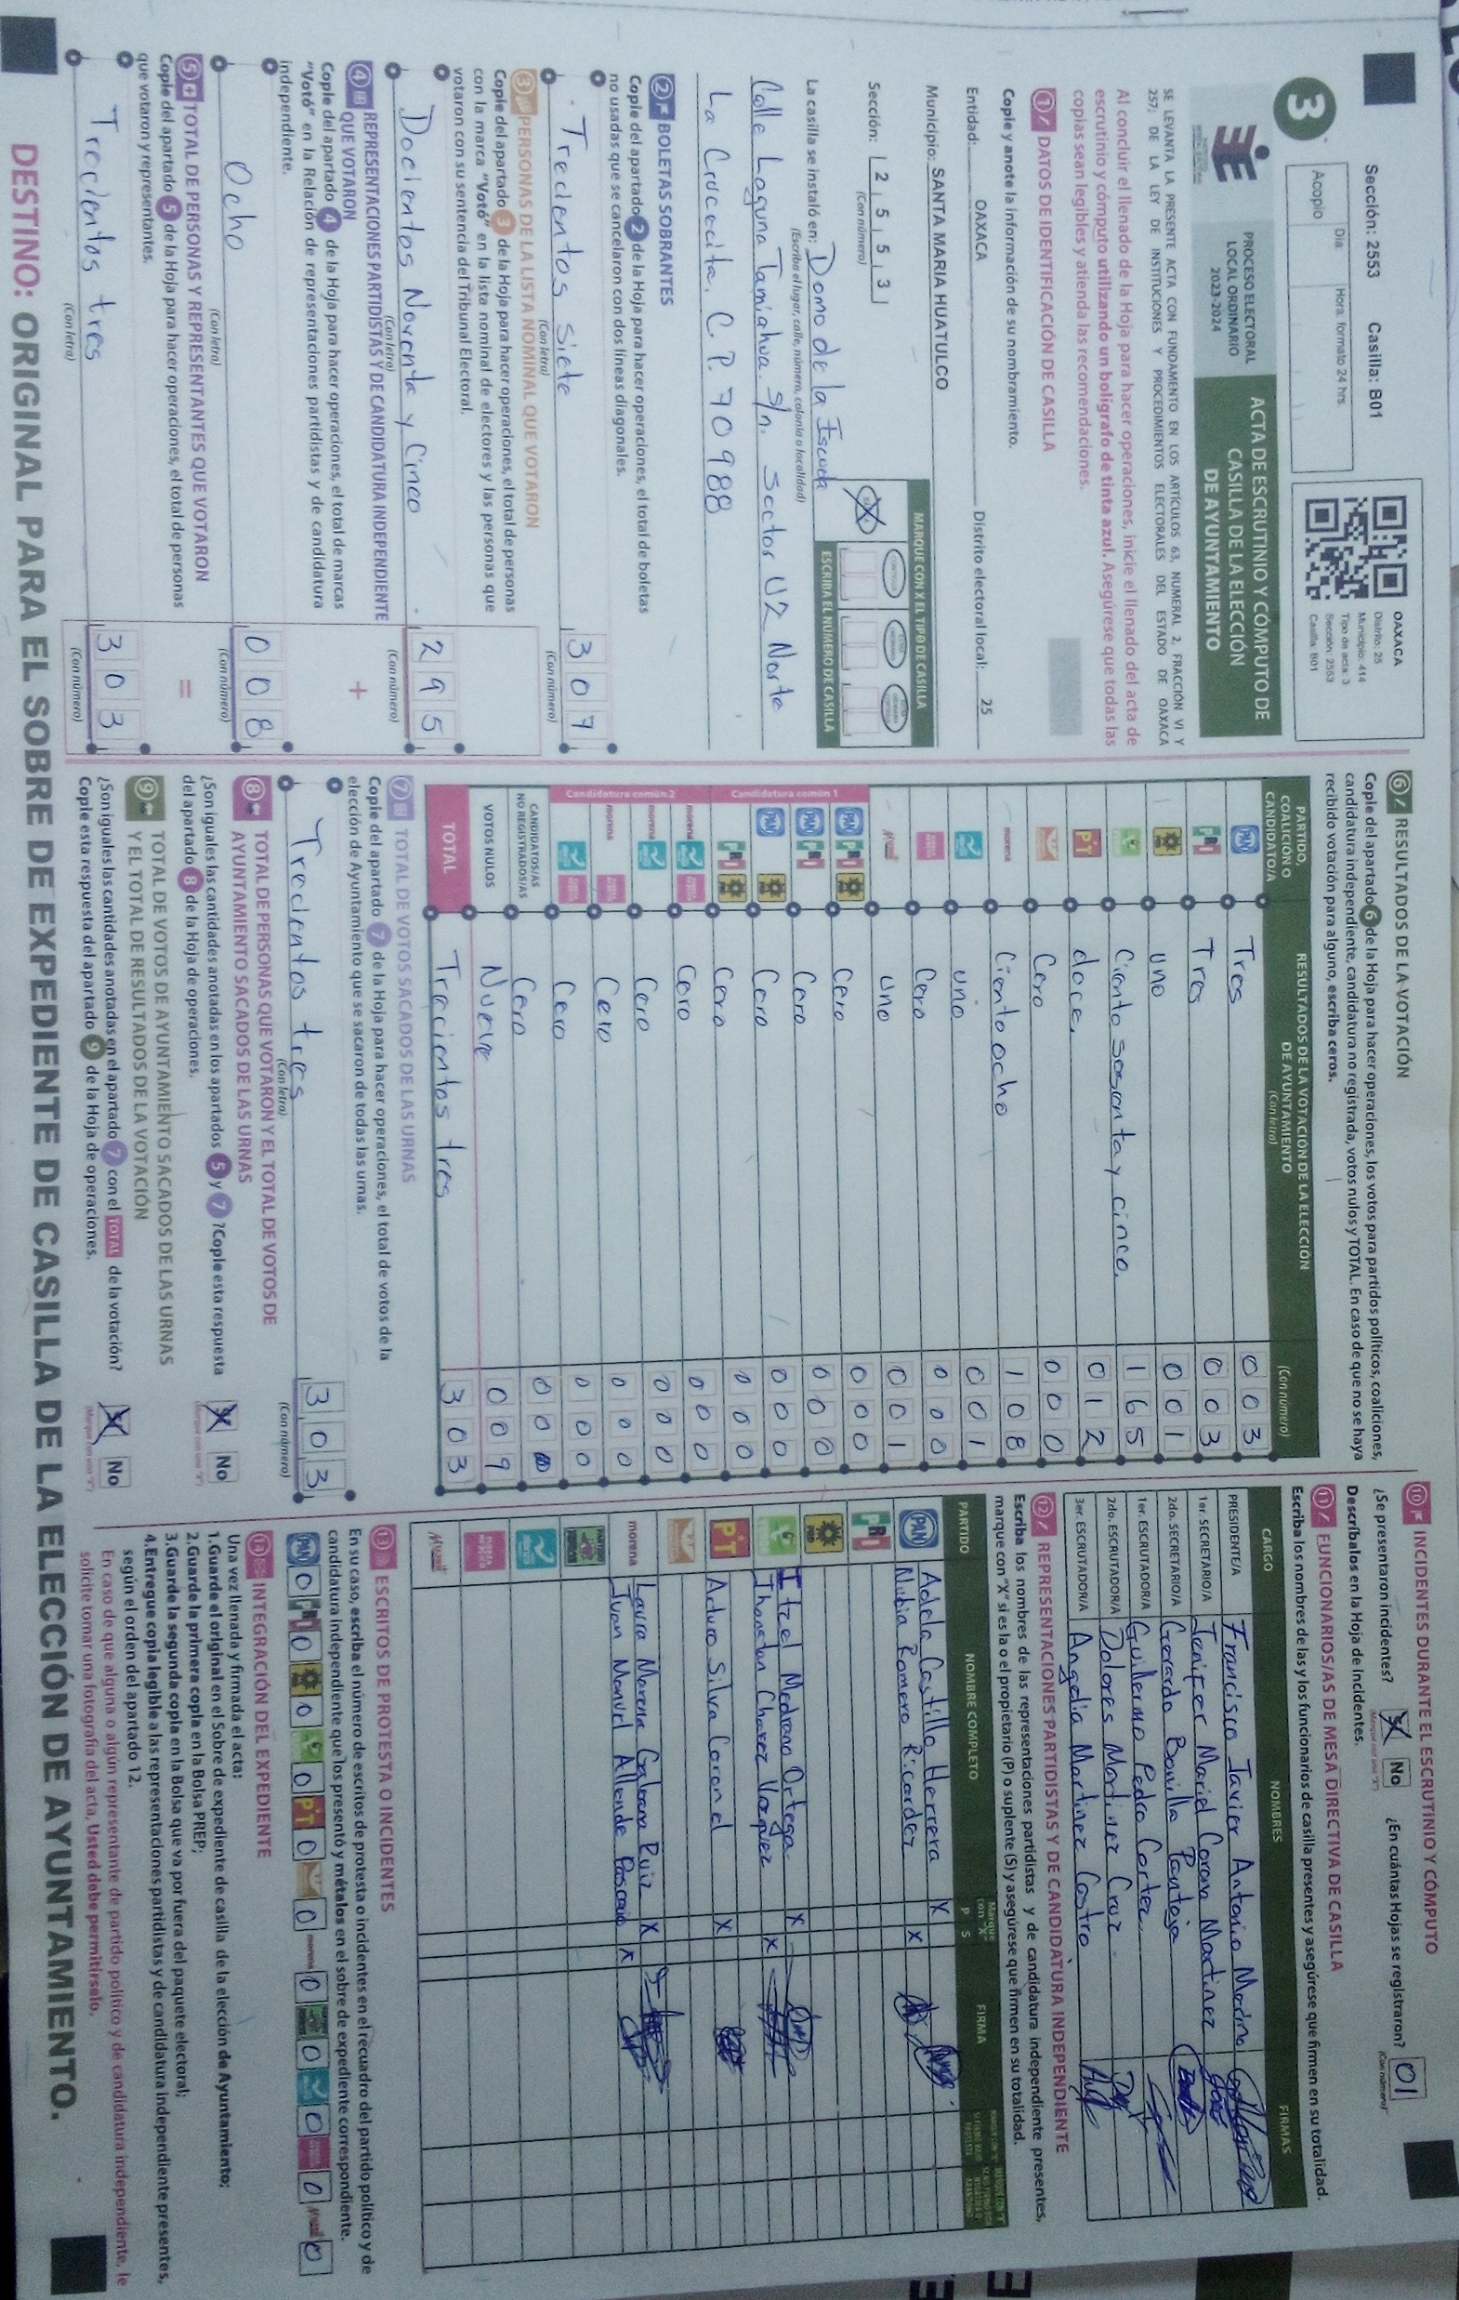 Sección: 2553 Casilla: B01
Día: Hora: formato 24 hrs.
Acopio
OAXACA
Distrito: 25
Municipio: 414
Tipo de acta: 3
Sección: 2553
Casilla: B01
3
PROCESO ELECTORAL
LOCAL ORDINARIO
2023-2024
ACTA DE ESCRUTINIO Y CÓMPUTO DE
CASILLA DE LA ELECCIÓN
DE AYUNTAMIENTO
SE LEVANTA LA PRESENTE ACTA CON FUNDAMENTO EN LOS ARTÍCULOS 63, NUMERAL 2, FRACCIÓN VI Y
257; DE LA LEY DE INSTITUCIONES Y PROCEDIMIENTOS ELECTORALES DEL ESTADO DE OAXACA
Al concluir el llenado de la Hoja para hacer operaciones, inicie el llenado del acta de
escrutinio y cómputo utilizando un bolígrafo de tinta azul. Asegúrese que todas las
copias sean legibles y atienda las recomendaciones.
1 DATOS DE IDENTIFICACIÓN DE CASILLA
Copie y anote la información de su nombramiento.
Entidad: OAXACA Distrito electoral local: 25
Municipio: SANTA MARIA HUATULCO
Sección: 2 5 5 3
(Con número)
MARQUE CON X EL TIPO DE CASILLA
ESCRIBA EL NÚMERO DE CASILLA
La casilla se instaló en: Domo de la Escuela
(Escriba el lugar, calle, número, colonia o localidad)
Calle Laguna Tamiahua. S/n. Sector U2 Norte
La Crucecita, C.P. 70988
2 BOLETAS SOBRANTES
Copie del apartado 2 de la Hoja para hacer operaciones, el total de boletas
no usadas que se cancelaron con dos líneas diagonales.
Trecientos siete 3 0 7
(Con letra) (Con número)
3 PERSONAS DE LA LISTA NOMINAL QUE VOTARON
Copie del apartado 3 de la Hoja para hacer operaciones, el total de personas
con la marca "Votó" en la lista nominal de electores y las personas que
votaron con su sentencia del Tribunal Electoral.
Docientos Noventa y Cinco 2 9 5
(Con letra) (Con número)
4 REPRESENTACIONES PARTIDISTAS Y DE CANDIDATURA INDEPENDIENTE
QUE VOTARON +
Copie del apartado 4 de la Hoja para hacer operaciones, el total de marcas
"Votó" en la Relación de representaciones partidistas y de candidatura
independiente.
Ocho 0 0 8
(Con letra) (Con número)
5 TOTAL DE PERSONAS Y REPRESENTANTES QUE VOTARON =
Copie del apartado 5 de la Hoja para hacer operaciones, el total de personas
que votaron y representantes.
Trecientos tres 3 0 3
(Con letra) (Con número)
6 RESULTADOS DE LA VOTACIÓN
Copie del apartado 6 de la Hoja para hacer operaciones, los votos para partidos políticos, coaliciones,
candidatura independiente, candidatura no registrada, votos nulos y TOTAL. En caso de que no se haya
recibido votación para alguno, escriba ceros.
PARTIDO,
COALICIÓN O
CANDIDATO/A
RESULTADOS DE LA VOTACIÓN DE LA ELECCIÓN
DE AYUNTAMIENTO
(Con letra) (Con número)
PAN Tres 0 0 3
PRI Tres 0 0 3
uno 0 0 1
Ciento sesenta y cinco. 1 6 5
PT doce. 0 1 2
Cero 0 0 0
morena Ciento ocho 1 0 8
uno 0 0 1
Cero 0 0 0
uno 0 0 1
Candidatura común 1
PAN PRI Cero 0 0 0
PAN PRI Cero 0 0 0
PAN Cero 0 0 0
PRI Cero 0 0 0
Candidatura común 2
morena Cero 0 0 0
morena Cero 0 0 0
morena Cero 0 0 0
Cero 0 0 0
CANDIDATOS/AS
NO REGISTRADOS/AS Cero 0 0 0
VOTOS NULOS Nueve 0 0 9
TOTAL Trecientos tres 3 0 3
7 TOTAL DE VOTOS SACADOS DE LAS URNAS
Copie del apartado 7 de la Hoja para hacer operaciones, el total de votos de la
elección de Ayuntamiento que se sacaron de todas las urnas.
Trecientos tres 3 0 3
(Con letra) (Con número)
8 TOTAL DE PERSONAS QUE VOTARON Y EL TOTAL DE VOTOS DE
AYUNTAMIENTO SACADOS DE LAS URNAS
¿Son iguales las cantidades anotadas en los apartados 5 y 7 ?Copie esta respuesta
del apartado 8 de la Hoja de operaciones. No
9 TOTAL DE VOTOS DE AYUNTAMIENTO SACADOS DE LAS URNAS
Y EL TOTAL DE RESULTADOS DE LA VOTACIÓN
¿Son iguales las cantidades anotadas en el apartado 7 con el TOTAL de la votación?
Copie esta respuesta del apartado 9 de la Hoja de operaciones. No
10 INCIDENTES DURANTE EL ESCRUTINIO Y CÓMPUTO
¿Se presentaron incidentes? No ¿En cuántas Hojas se registraron? 01
Descríbalos en la Hoja de incidentes. (Con número)
11 FUNCIONARIOS/AS DE MESA DIRECTIVA DE CASILLA
Escriba los nombres de las y los funcionarios de casilla presentes y asegúrese que firmen en su totalidad.
CARGO NOMBRES FIRMAS
PRESIDENTE/A Francisco Javier Antonio Merino
1er. SECRETARIO/A Jenifer Mariel Corona Martinez
2do. SECRETARIO/A Gerardo Bonilla Pantoja
1er. ESCRUTADOR/A Guillermo Pedro Cortez
2do. ESCRUTADOR/A Dolores Martinez Cruz
3er. ESCRUTADOR/A Angelia Martinez Castro
12 REPRESENTACIONES PARTIDISTAS Y DE CANDIDATURA INDEPENDIENTE
Escriba los nombres de las representaciones partidistas y de candidatura independiente presentes,
marque con "X" si es la o el propietario (P) o suplente (S) y asegúrese que firmen en su totalidad.
PARTIDO NOMBRE COMPLETO Marque con "X" P S FIRMA
PAN Adela Castillo Herrera X
Nubia Romero Ricardez X
PRI
Itzel Medrano Ortega X
Jhonatan Chavez Vazquez X
PT Arturo Silva Coronel X
morena Laura Morena Galeana Ruiz X
Ivan Manuel Allende Pascacio X
13 ESCRITOS DE PROTESTA O INCIDENTES
En su caso, escriba el número de escritos de protesta o incidentes en el recuadro del partido político y de
candidatura independiente que los presentó y métalos en el sobre de expediente correspondiente.
PAN 0 PRI 0 0 0 PT 0 0 morena 0 0 0 0 0
14 INTEGRACIÓN DEL EXPEDIENTE
Una vez llenada y firmada el acta:
1.Guarde el original en el Sobre de expediente de casilla de la elección de Ayuntamiento;
2.Guarde la primera copia en la Bolsa PREP;
3.Guarde la segunda copia en la Bolsa que va por fuera del paquete electoral;
4.Entregue copia legible a las representaciones partidistas y de candidatura independiente presentes,
según el orden del apartado 12.
En caso de que alguna o algún representante de partido político y de candidatura independiente, le
solicite tomar una fotografía del acta, Usted debe permitírselo.
DESTINO: ORIGINAL PARA EL SOBRE DE EXPEDIENTE DE CASILLA DE LA ELECCIÓN DE AYUNTAMIENTO.